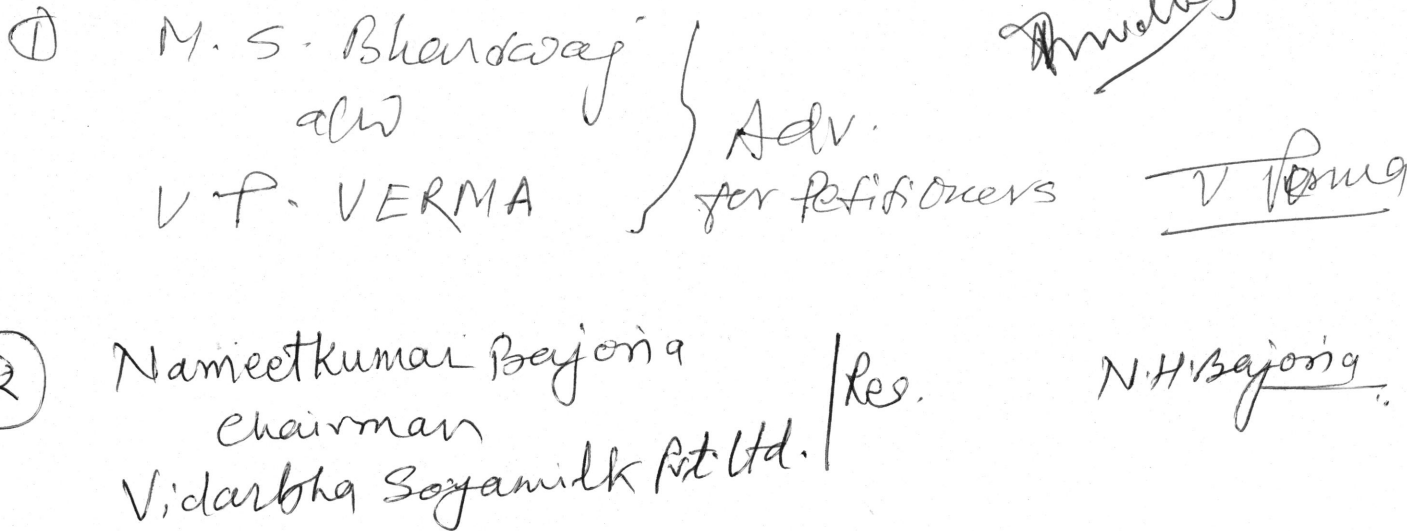 ① M. S. Bhardwaj
a/w
V P. VERMA
Adv.
for Petitioners
V Verma
② Nameetkumar Bajoria
Chairman
Vidarbha Soyamilk Pvt. Ltd.
Res.
N.H.Bajoria